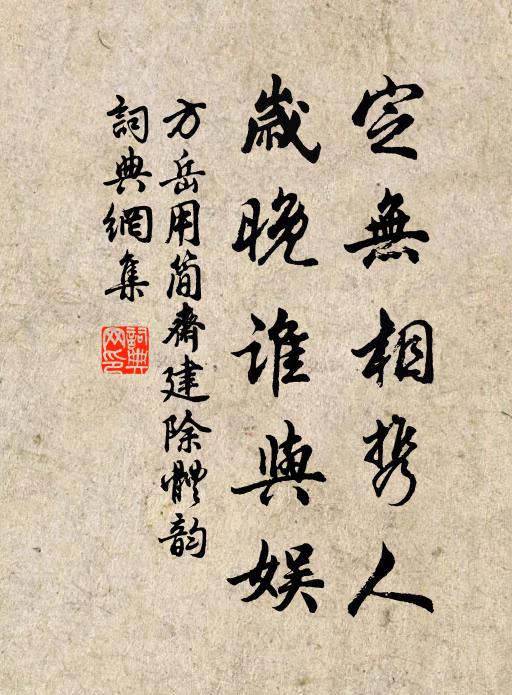 定無相攜人
歲晚誰與娛
方岳用簡齋建除體韵
詞典網集
詞典網印